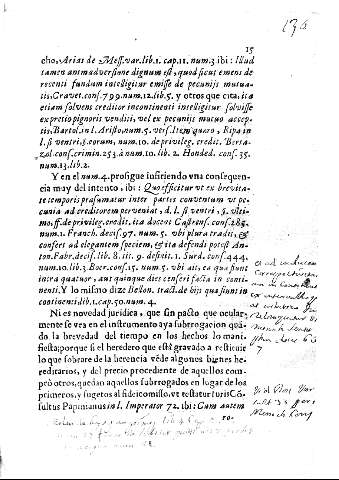 136
15
cho, Arias de Mess. var. lib. 1. cap. 11. num. 3 ibi: Illud
tamen animadversione dignum est, quod si cui emens de
recenti fundum intelligitur emisse de pecunijs mutua-
tis, Gravet. cons. 799. num. 12. lib. 5. y otros que cita, ita
etiam solvens creditor incontinenti intelligitur solvisse
ex pretio pignoris venditi, vel ex pecunijs mutuo accep-
tis, Bartol. in l. Aristo, num. 5. vers. Item quæro, Ripa in
l. si ventri. §. eorum, num. 10. de privileg. credit. Bersa-
zol. cons. crimin. 253. à num. 10. lib. 2. Honded. cons. 35.
num. 13. lib. 2.
Y en el num. 4. prosigue infiriendo vna consequen-
cia muy del intento, ibi: Quo efficitur vt ex brevita-
te temporis præsumatur inter partes conventum vt pe-
cunia ad creditorem perveniat, d. l. si ventri, §. vlti-
mo, ff. de privileg. credit. ita docent Castrens. cons. 285.
num. 1. Franch. decis. 97. num. 5. vbi plura tradit, &
confert ad elegantem speciem, & ita defendi potest An-
ton. Fabr. decis. lib. 8. tit. 9. defecit 1. Surd. cons. 444.
num. 10. lib. 3. Boer. cons. 15. num. 5. vbi ait, ea quæ fiunt
intra quatuor, aut quinque dies censeri facta in conti-
nenti. Y lo mismo dize Bellon. tract. de his quæ fiunt in
continenti lib. 1. cap. 50. num. 4.
Ni es novedad juridica, que sin pacto que ocular-
mente se vea en el instrumento aya subrogacion quã-
do la brevedad del tiempo en los hechos lo mani-
fiesta; porque si el heredero que està gravado a restituir
lo que sobrare de la herencia vède algunos bienes he-
reditarios, y del precio procedente de aquellos com-
prò otros, quedan aquellos subrogados en lugar de los
primeros, y sugetos al fideicomisso, vt testatur Iuris Cõ-
sultus Papinianus in l. Imperator 72. ibi: Cum autem